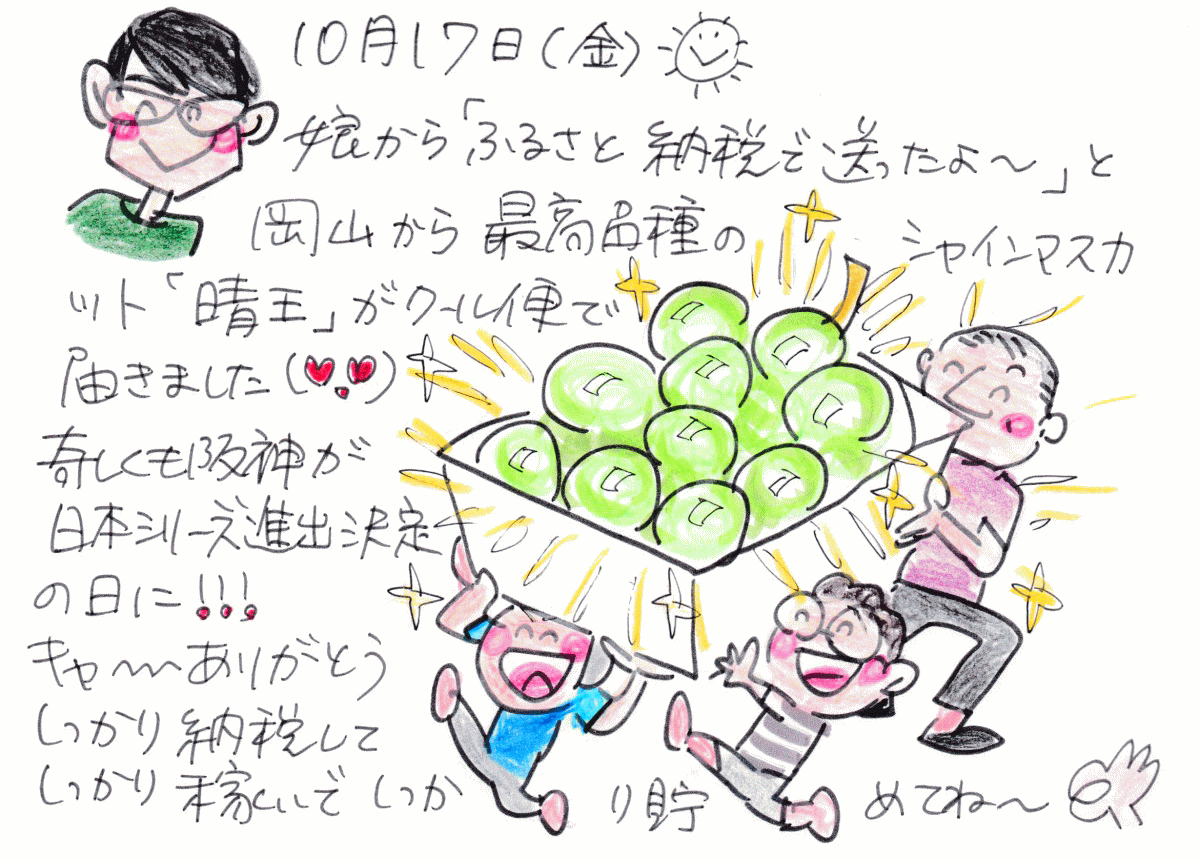 10月17日(金)
娘から「ふるさと納税で送ったよ〜」と
岡山から最高品種のシャインマスカ
ット「晴王」がクール便で
届きました(♥.♥)
奇しくも阪神が
日本シリーズ進出決定
の日に!!!
キャ〜〜ありがとう
しっかり納税して
しっかり稼いで しっかり貯めてね〜